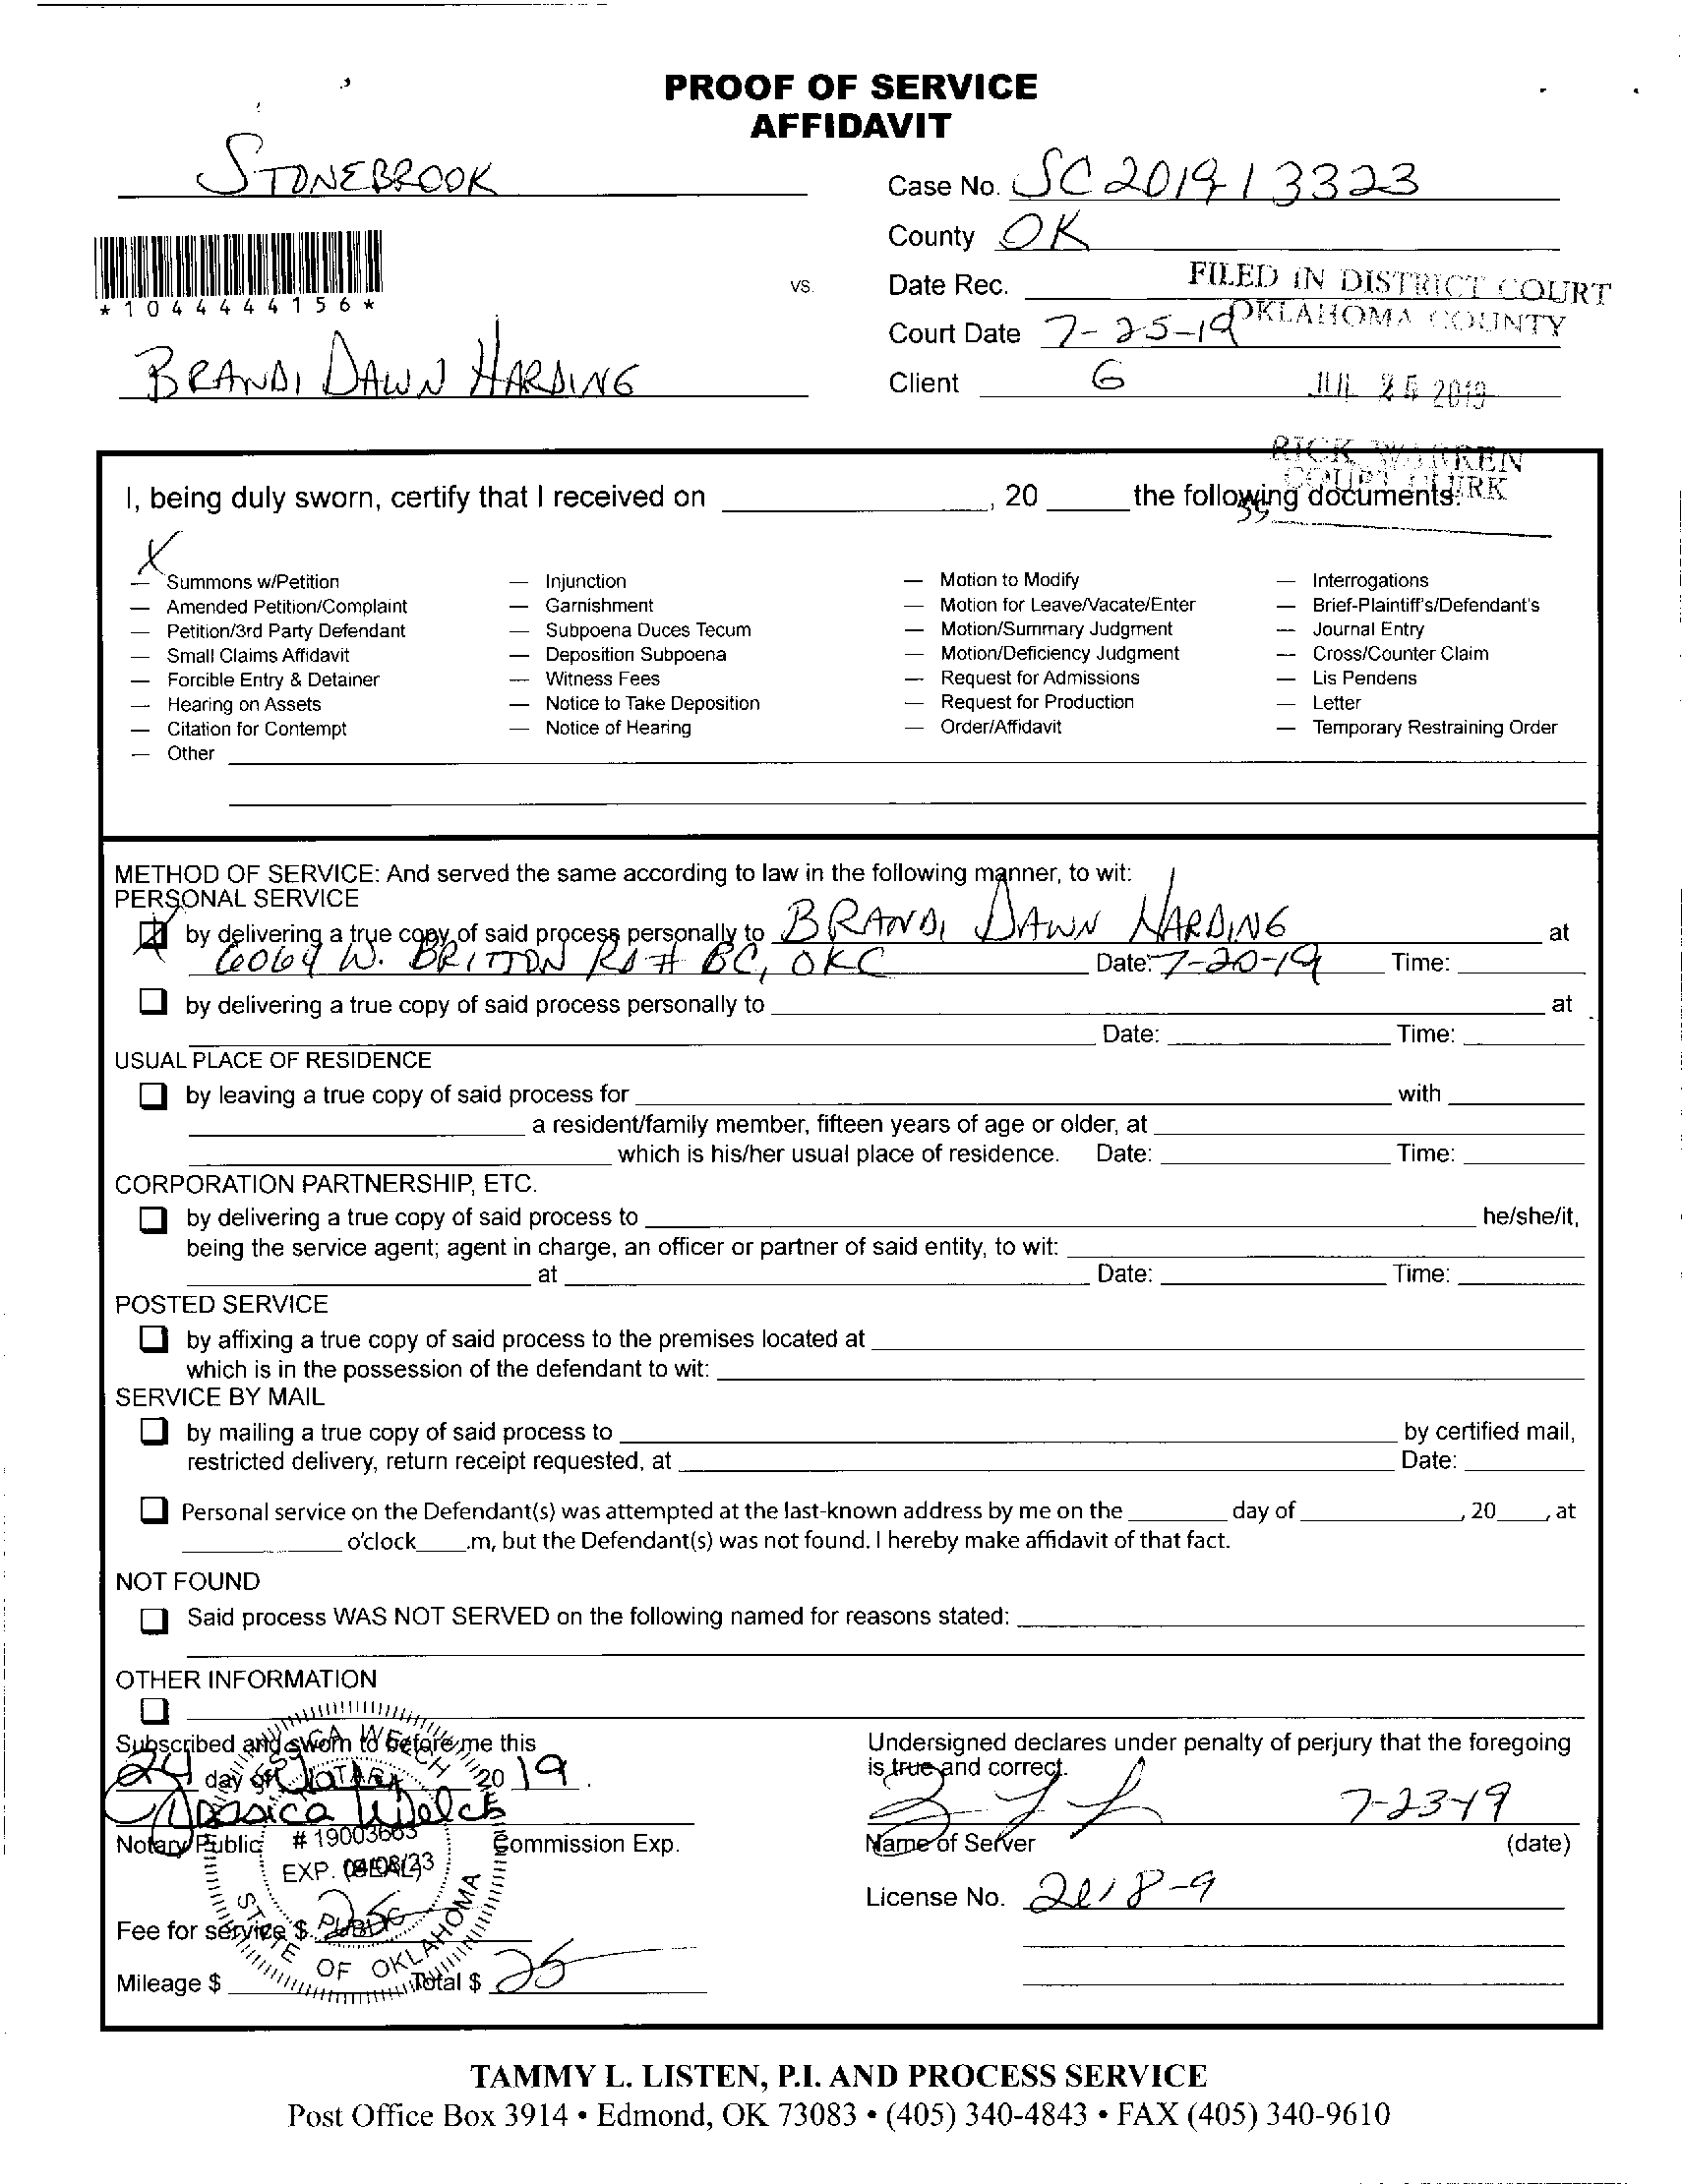 PROOF OF SERVICE
AFFIDAVIT
STONEBROOK
Case No. SC 2019 13323
County OK
*1044444156*
vs.
Date Rec.
FILED IN DISTRICT COURT
OKLAHOMA COUNTY
Court Date 7-25-19
BRANDI DAWN HARDING
Client G
JUL 25 2019
RICK WARREN
COURT CLERK
I, being duly sworn, certify that I received on , 20 the following documents:
X
Summons w/Petition
Amended Petition/Complaint
Petition/3rd Party Defendant
Small Claims Affidavit
Forcible Entry & Detainer
Hearing on Assets
Citation for Contempt
Other
Injunction
Garnishment
Subpoena Duces Tecum
Deposition Subpoena
Witness Fees
Notice to Take Deposition
Notice of Hearing
Motion to Modify
Motion for Leave/Vacate/Enter
Motion/Summary Judgment
Motion/Deficiency Judgment
Request for Admissions
Request for Production
Order/Affidavit
Interrogations
Brief-Plaintiff's/Defendant's
Journal Entry
Cross/Counter Claim
Lis Pendens
Letter
Temporary Restraining Order
METHOD OF SERVICE: And served the same according to law in the following manner, to wit:
PERSONAL SERVICE
by delivering a true copy of said process personally to BRANDI DAWN HARDING at
6064 W. BRITTON RD # BC, OKC Date: 7-20-19 Time:
by delivering a true copy of said process personally to at
Date: Time:
USUAL PLACE OF RESIDENCE
by leaving a true copy of said process for with
a resident/family member, fifteen years of age or older, at
which is his/her usual place of residence. Date: Time:
CORPORATION PARTNERSHIP, ETC.
by delivering a true copy of said process to he/she/it,
being the service agent; agent in charge, an officer or partner of said entity, to wit:
at Date: Time:
POSTED SERVICE
by affixing a true copy of said process to the premises located at
which is in the possession of the defendant to wit:
SERVICE BY MAIL
by mailing a true copy of said process to by certified mail,
restricted delivery, return receipt requested, at Date:
Personal service on the Defendant(s) was attempted at the last-known address by me on the day of , 20 , at
o'clock .m, but the Defendant(s) was not found. I hereby make affidavit of that fact.
NOT FOUND
Said process WAS NOT SERVED on the following named for reasons stated:
OTHER INFORMATION
Subscribed and sworn to before me this
24 day of July 20 19.
Jessica Welch
Notary Public (SEAL) Commission Exp.
JESSICA WELCH
NOTARY
# 19003663
EXP. 04/08/23
PUBLIC
STATE OF OKLAHOMA
Fee for service $ 25
Mileage $ Total $ 25
Undersigned declares under penalty of perjury that the foregoing
is true and correct.
7-23-19
Name of Server (date)
License No. 2018-9
TAMMY L. LISTEN, P.I. AND PROCESS SERVICE
Post Office Box 3914 • Edmond, OK 73083 • (405) 340-4843 • FAX (405) 340-9610